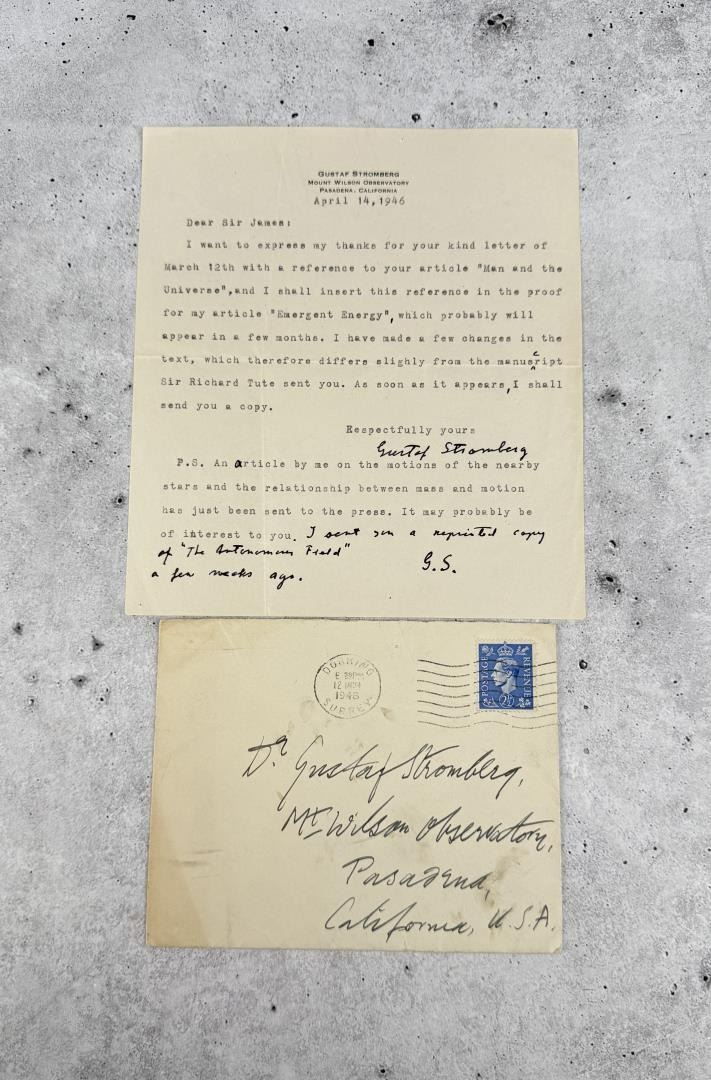 GUSTAF STROMBERG
MOUNT WILSON OBSERVATORY
PASADENA, CALIFORNIA
April 14,1946
Dear Sir James:
I want to express my thanks for your kind letter of
March 12th with a reference to your article "Man and the
Universe",and I shall insert this reference in the proof
for my article "Emergent Energy", which probably will
appear in a few months. I have made a few changes in the
text, which therefore differs slighly from the manuscript
Sir Richard Tute sent you. As soon as it appears, I shall
send you a copy.
Respectfully yours
Gustaf Stromberg
P.S. An article by me on the motions of the nearby
stars and the relationship between mass and motion
has just been sent to the press. It may probably be
of interest to you. I sent you a reprinted copy
of "The Autonomous Field"
a few weeks ago. G.S.
DORKING
12 MCH
SURREY
POSTAGE REVENUE
2½
Dr Gustaf Stromberg,
Mt Wilson Observatory,
Pasadena,
California, U.S.A.